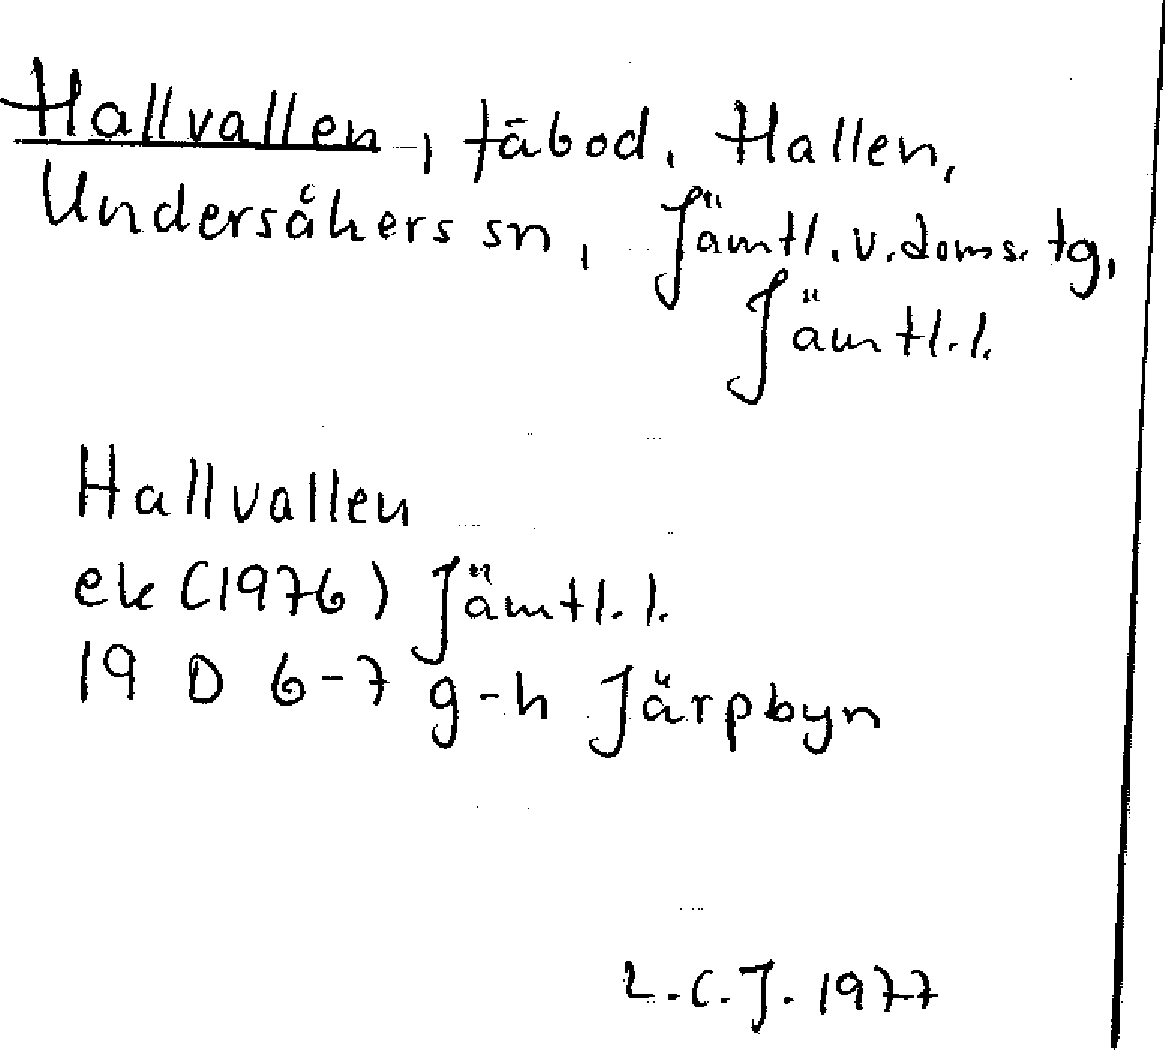 Hallvallen, fäbod, Hallen,
Undersåkers sn, Jämtl. v. doms. tg,
Jämtl. l.
Hallvallen
ek (1976) Jämtl. l.
19 D 6-7 g-h Järpbyn
L.C.J. 1977